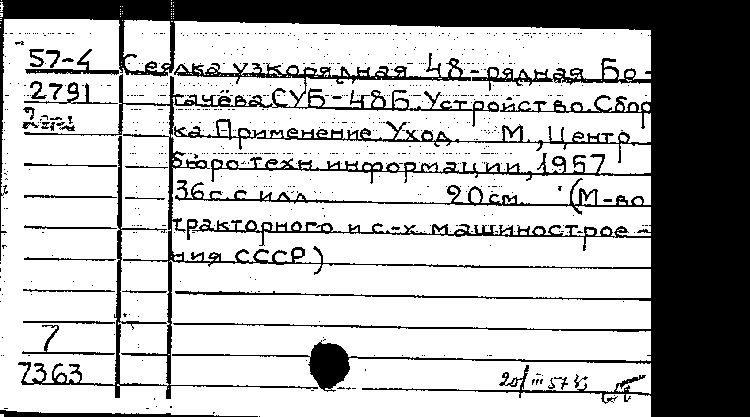 57-4 Сеялка узкорядная 48-рядная Бо-
2791 гачёва СУБ-48Б. Устройство. Сбор
ка. Применение. Уход. М., Центр.
бюро техн. информации, 1957
36с. с илл. 20 см. (М-во
тракторного и с.-х. машинострое-
ния СССР)
7
7363
20/III 57